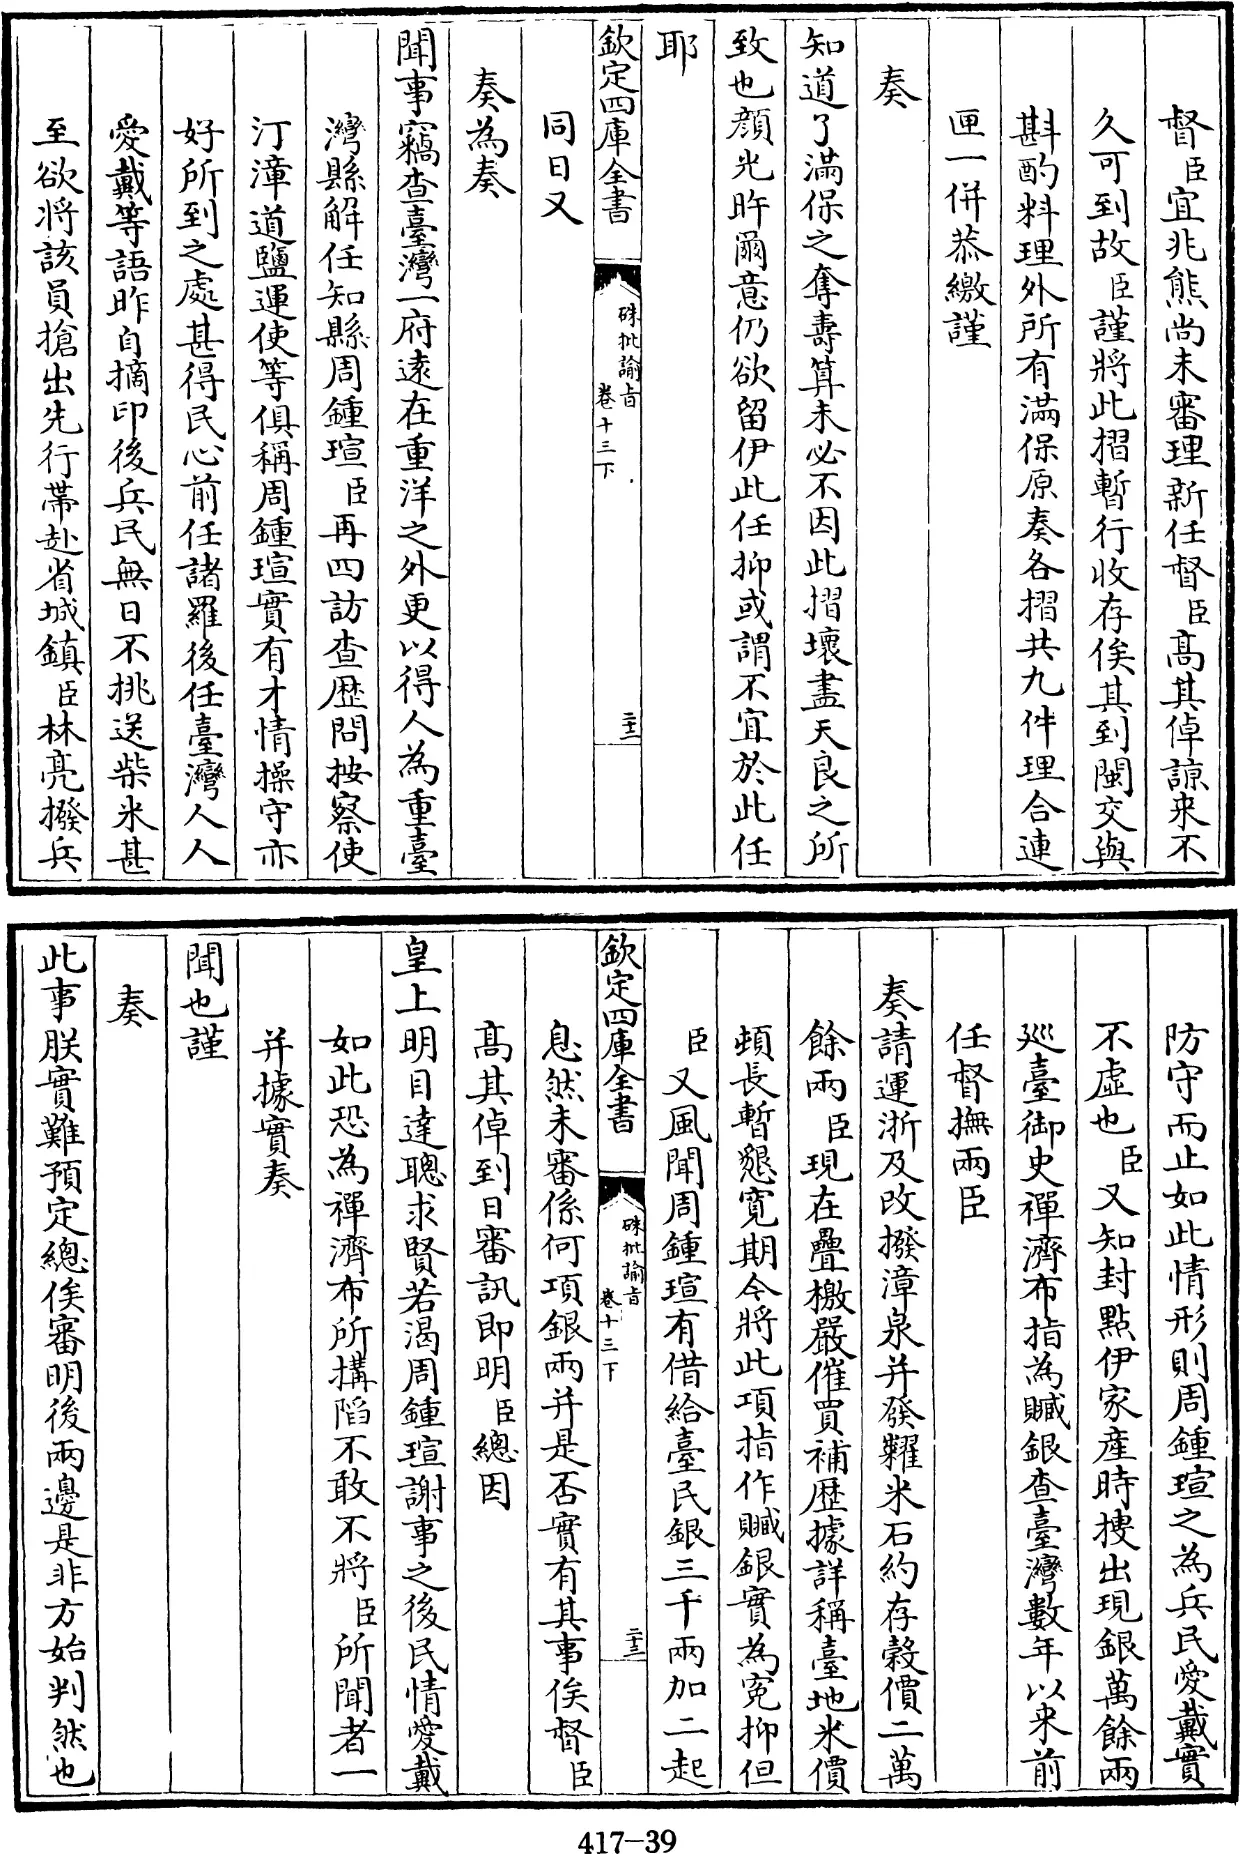 督臣宜兆熊尚未審理新任督臣高其倬諒来不
久可到故臣謹將此摺暫行收存俟其到閩交與
斟酌料理外所有滿保原奏各摺共九件理合連
匣一併恭繳謹
奏
知道了滿保之奪壽算未必不因此摺壞盡天良之所
致也顔光旿爾意仍欲留伊此任抑或謂不宜於此任
耶
欽定四庫全書
硃批諭旨
卷十三下
二十二
同日又
奏為奏
聞事竊查臺灣一府逺在重洋之外更以得人為重臺
灣縣解任知縣周鍾瑄臣再四訪查歴問按察使
汀漳道鹽運使等俱稱周鍾瑄實有才情操守亦
好所到之處甚得民心前任諸羅後任臺灣人人
愛戴等語昨自摘印後兵民無日不挑送柴米甚
至欲將該員搶出先行帶赴省城鎮臣林亮撥兵
防守而止如此情形則周鍾瑄之為兵民愛戴實
不虛也臣又知封點伊家產時摟出現銀萬餘兩
廵臺御史禪濟布指為贓銀查臺灣數年以来前
任督撫兩臣
奏請運浙及改撥漳泉并發糶米石約存榖價二萬
餘兩臣現在疊檄嚴催買補歴據詳稱臺地米價
頓長暫懇寛期令將此項指作贓銀實為寃抑但
臣又風聞周鍾瑄有借給臺民銀三千兩加二起
欽定四庫全書
硃批諭旨
卷十三下
二十三
息然未審係何項銀兩并是否實有其事俟督臣
高其倬到日審訊即明臣總因
皇上明目達聰求賢若渴周鍾瑄謝事之後民情愛戴
如此恐為禪濟布所搆陷不敢不將臣所聞者一
并據實奏
聞也謹
奏
此事朕實難預定總俟審明後兩邊是非方始判然也
417-39